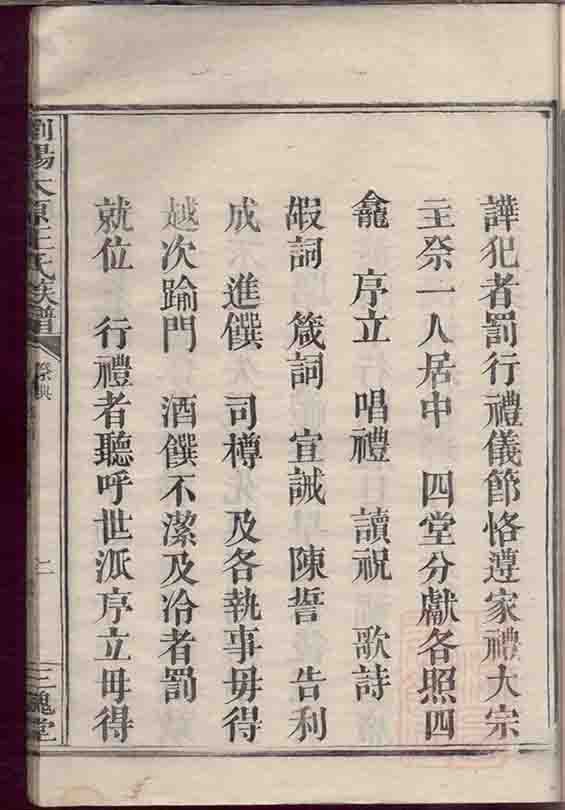 譁犯者罰行禮儀節恪遵家禮大宗
主祭一人居中 四堂分獻各照四
龕 序立 唱禮 讀祝 歌詩
嘏詞 箴詞 宣誡 陳誓 告利
成 進饌 司樽 及各執事毋得
越次踰門 酒饌不潔及冷者罰
就位 行禮者聽呼世派序立毋得
瀏陽太原王氏族譜
祭典
二
三槐堂